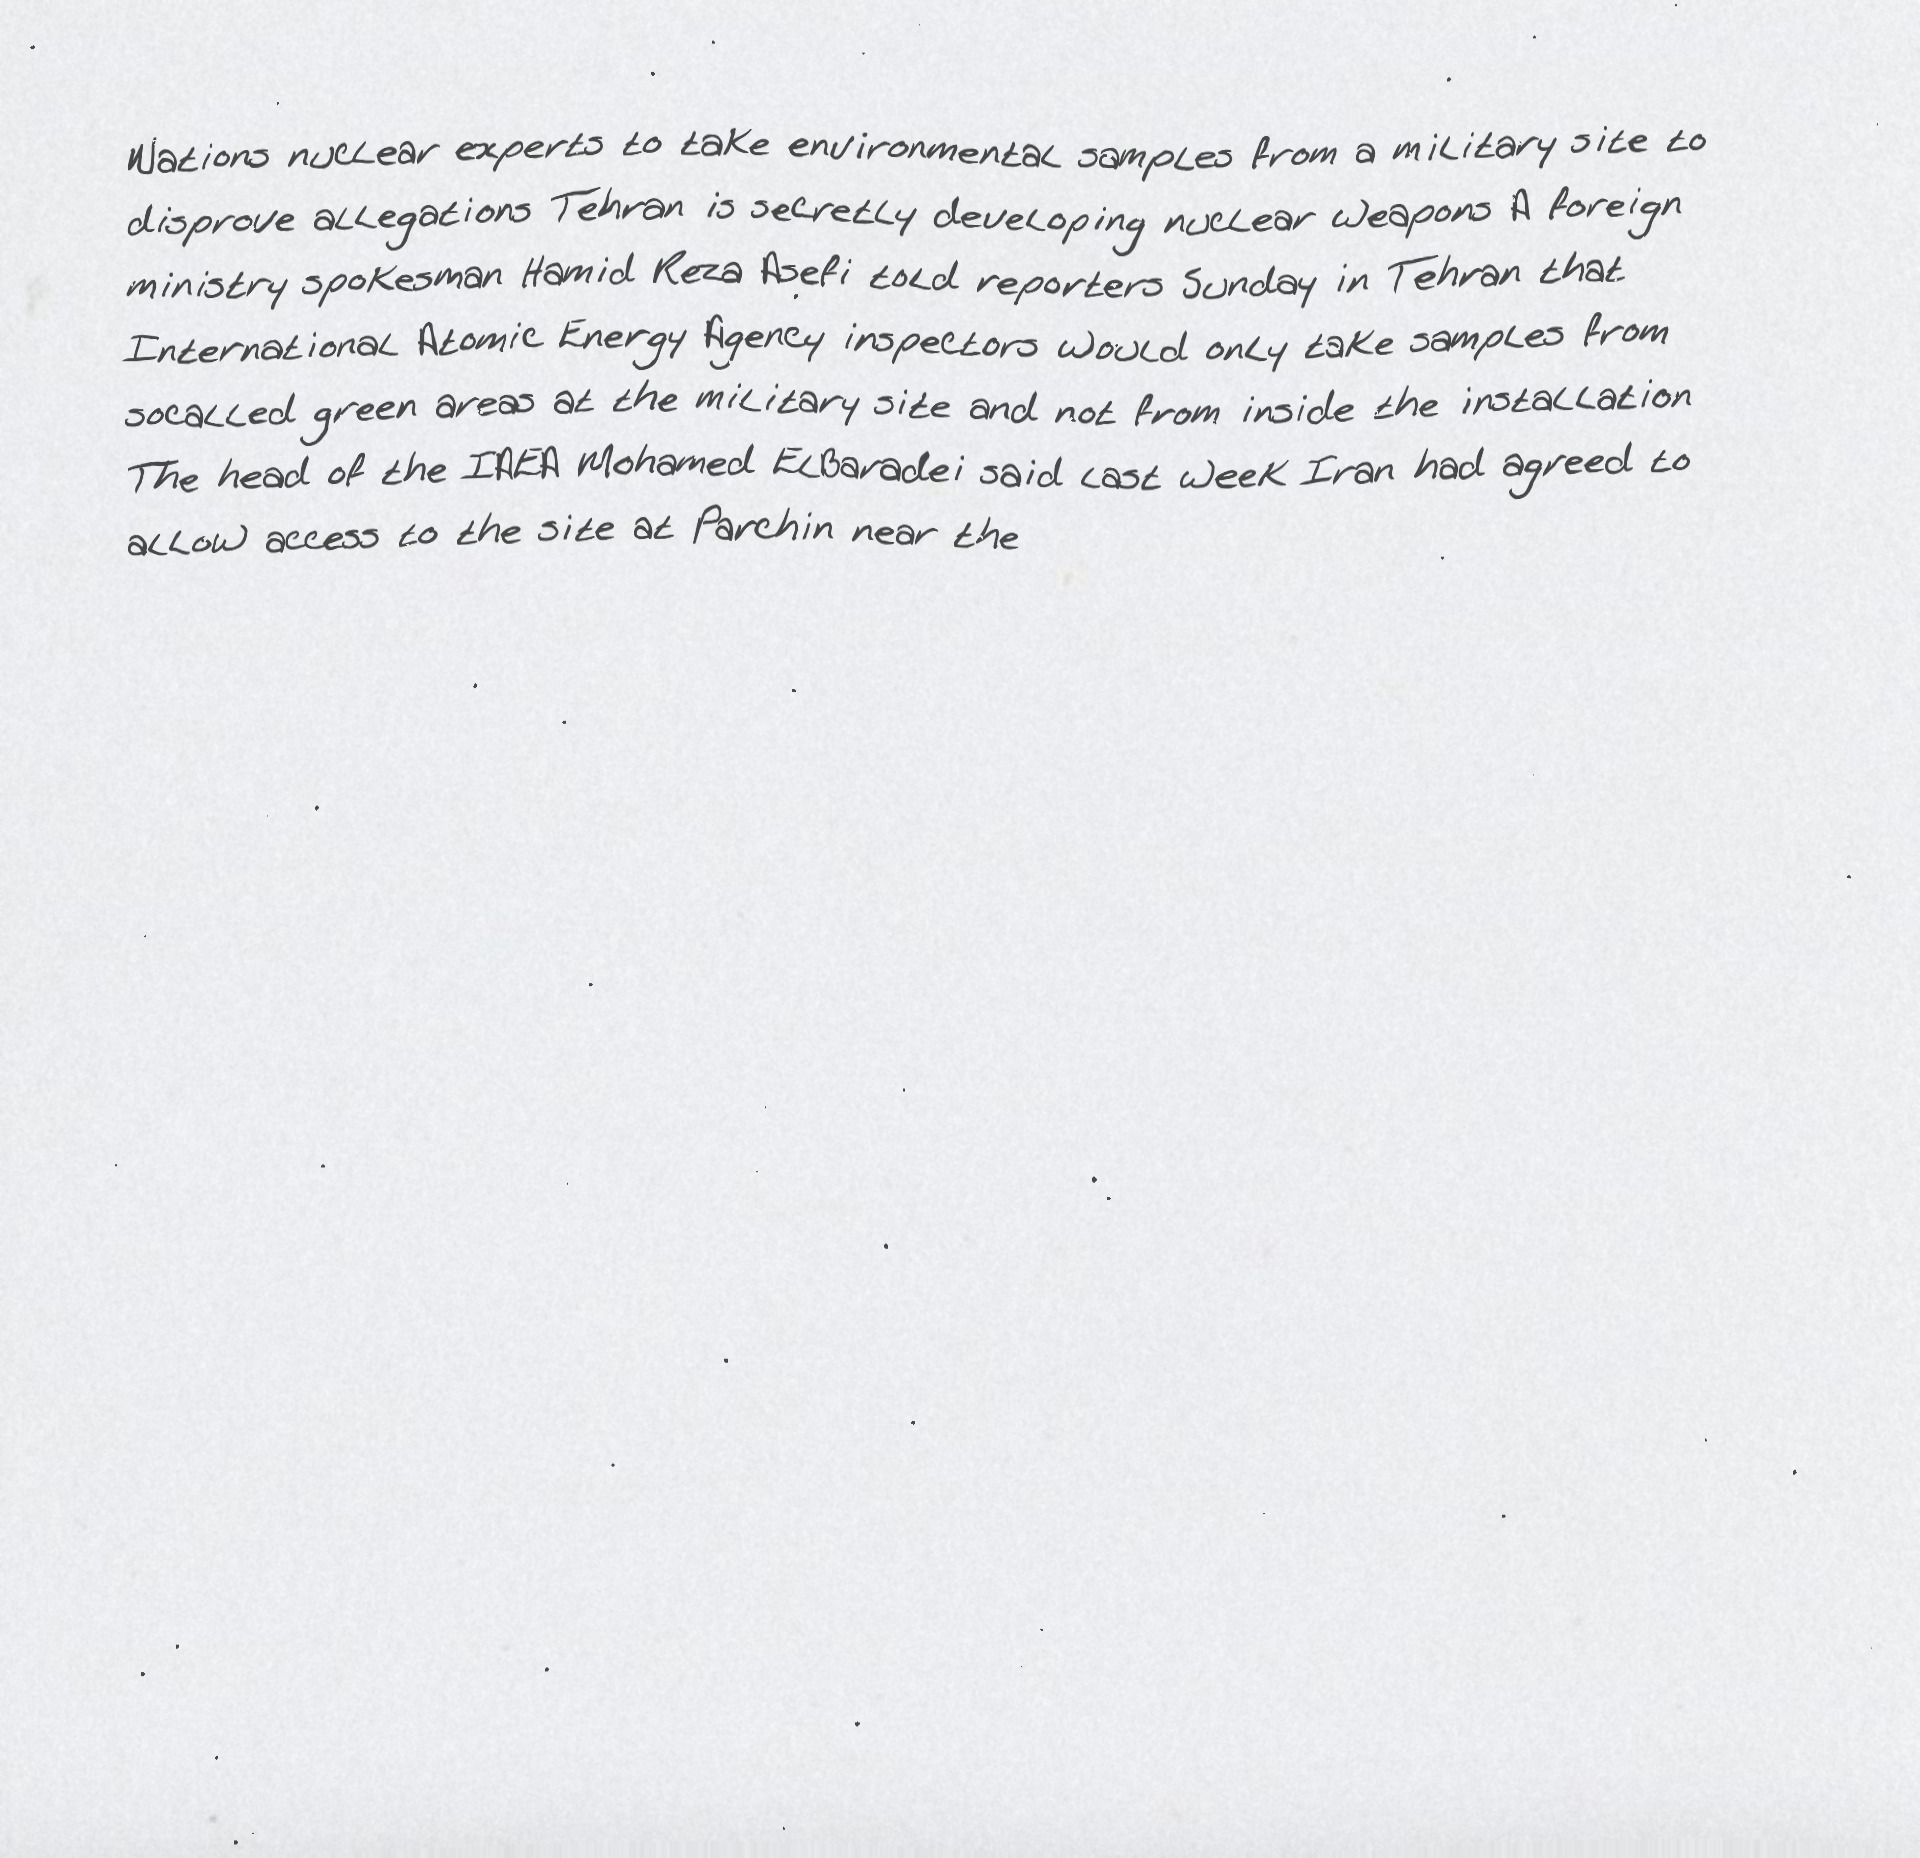 Nations nuclear experts to take environmental samples from a military site to
disprove allegations Tehran is secretly developing nuclear weapons A foreign
ministry spokesman Hamid Reza Asefi told reporters Sunday in Tehran that
International Atomic Energy Agency inspectors would only take samples from
socalled green areas at the military site and not from inside the installation
The head of the IAEA Mohamed ElBaradei said last week Iran had agreed to
allow access to the site at Parchin near the